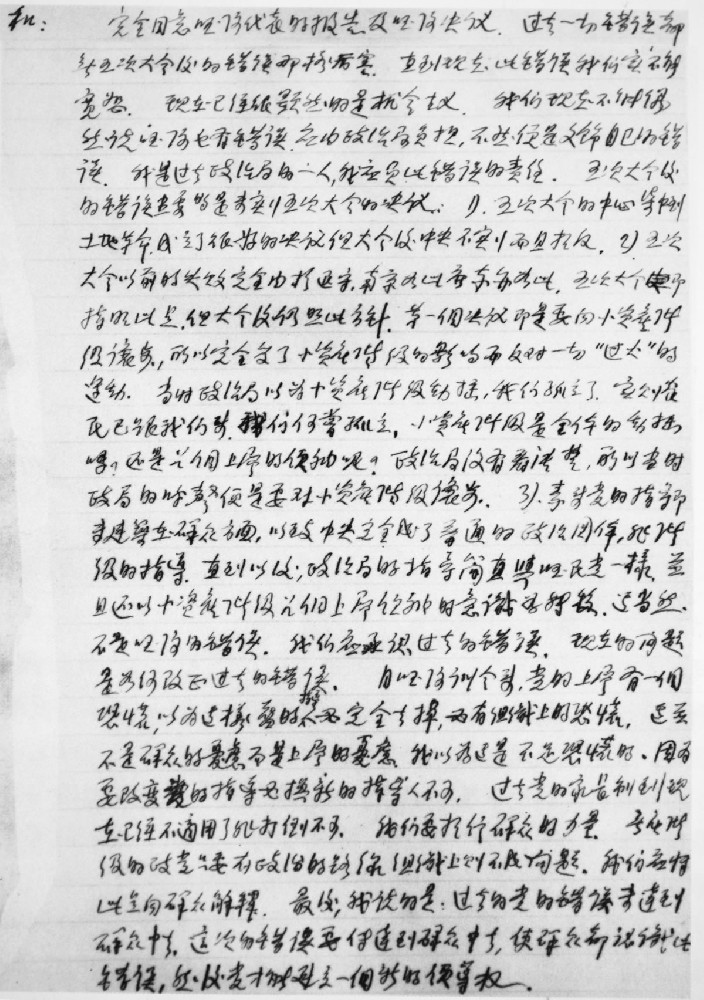 和：　完全同意国际代表的报告及国际决议．过去一切错误都
五次大会后的错误那样厉害．直到现在，此错误我们实不能
宽恕．现在已经很显然的是机会主义．我们现在不能仍
然说国际也有错误．应由政治局负担，不然便是文饰自己的错
误．我是过去政治局的一人，我应负此错误的责任．五次大会后
的错误主要皆是未实行五次大会的决议：1)．五次大会的中心
土地革命，订了很好的决议但大会后中央不实行而且相反．2)五次
大会以前的失败完全由于，南京如此广东亦如此．五次大会即
指明此点．但大会后仍照此方针．第一个决议即是要向小资产阶
级让步，所以完全受了小资产阶级的影响而反对一切“过火”的
运动．当时政治局以为小资产阶级动摇，我们孤立了．实则农
民已跟我们，我们何尝孤立．小资产阶级是全体的动摇
吗？还是几个上层的领袖呢？政治局没有看清楚，所以当时
政局的呼声便是要对小资产阶级让步．3)．未将党的指导
建筑在群众方面，以致中央完全成了普通的政治团体，非阶
级的指导．直到以后，政治局的指导简直与国民党一样．并
且还以小资产阶级几个上层领袖的意识为转移．这当然
不是国际的错误．我们应承认过去的错误．现在的问题
是如何改正过去的错误．自国际训令到，党的上层有一个
恐慌，以为这样党的指导必完全去掉，必有组织上的恐慌，这并
不是群众的意思而是上层的意思．我以为这是不应恐慌的．因为
要改变党的指导必换新的指导人不可．过去党的家长制到现
在已经不适用了非打倒不可．我们要相信群众的力量．无产阶
级的政党只要有政治的路线，组织上则不成问题．我们应将
此点向群众解释．最后，我说的是：过去的党的错误未达到
群众中去，这次的错误要使达到群众中去，使群众都认识此
错误，然后党才能再立一个新的领导权．